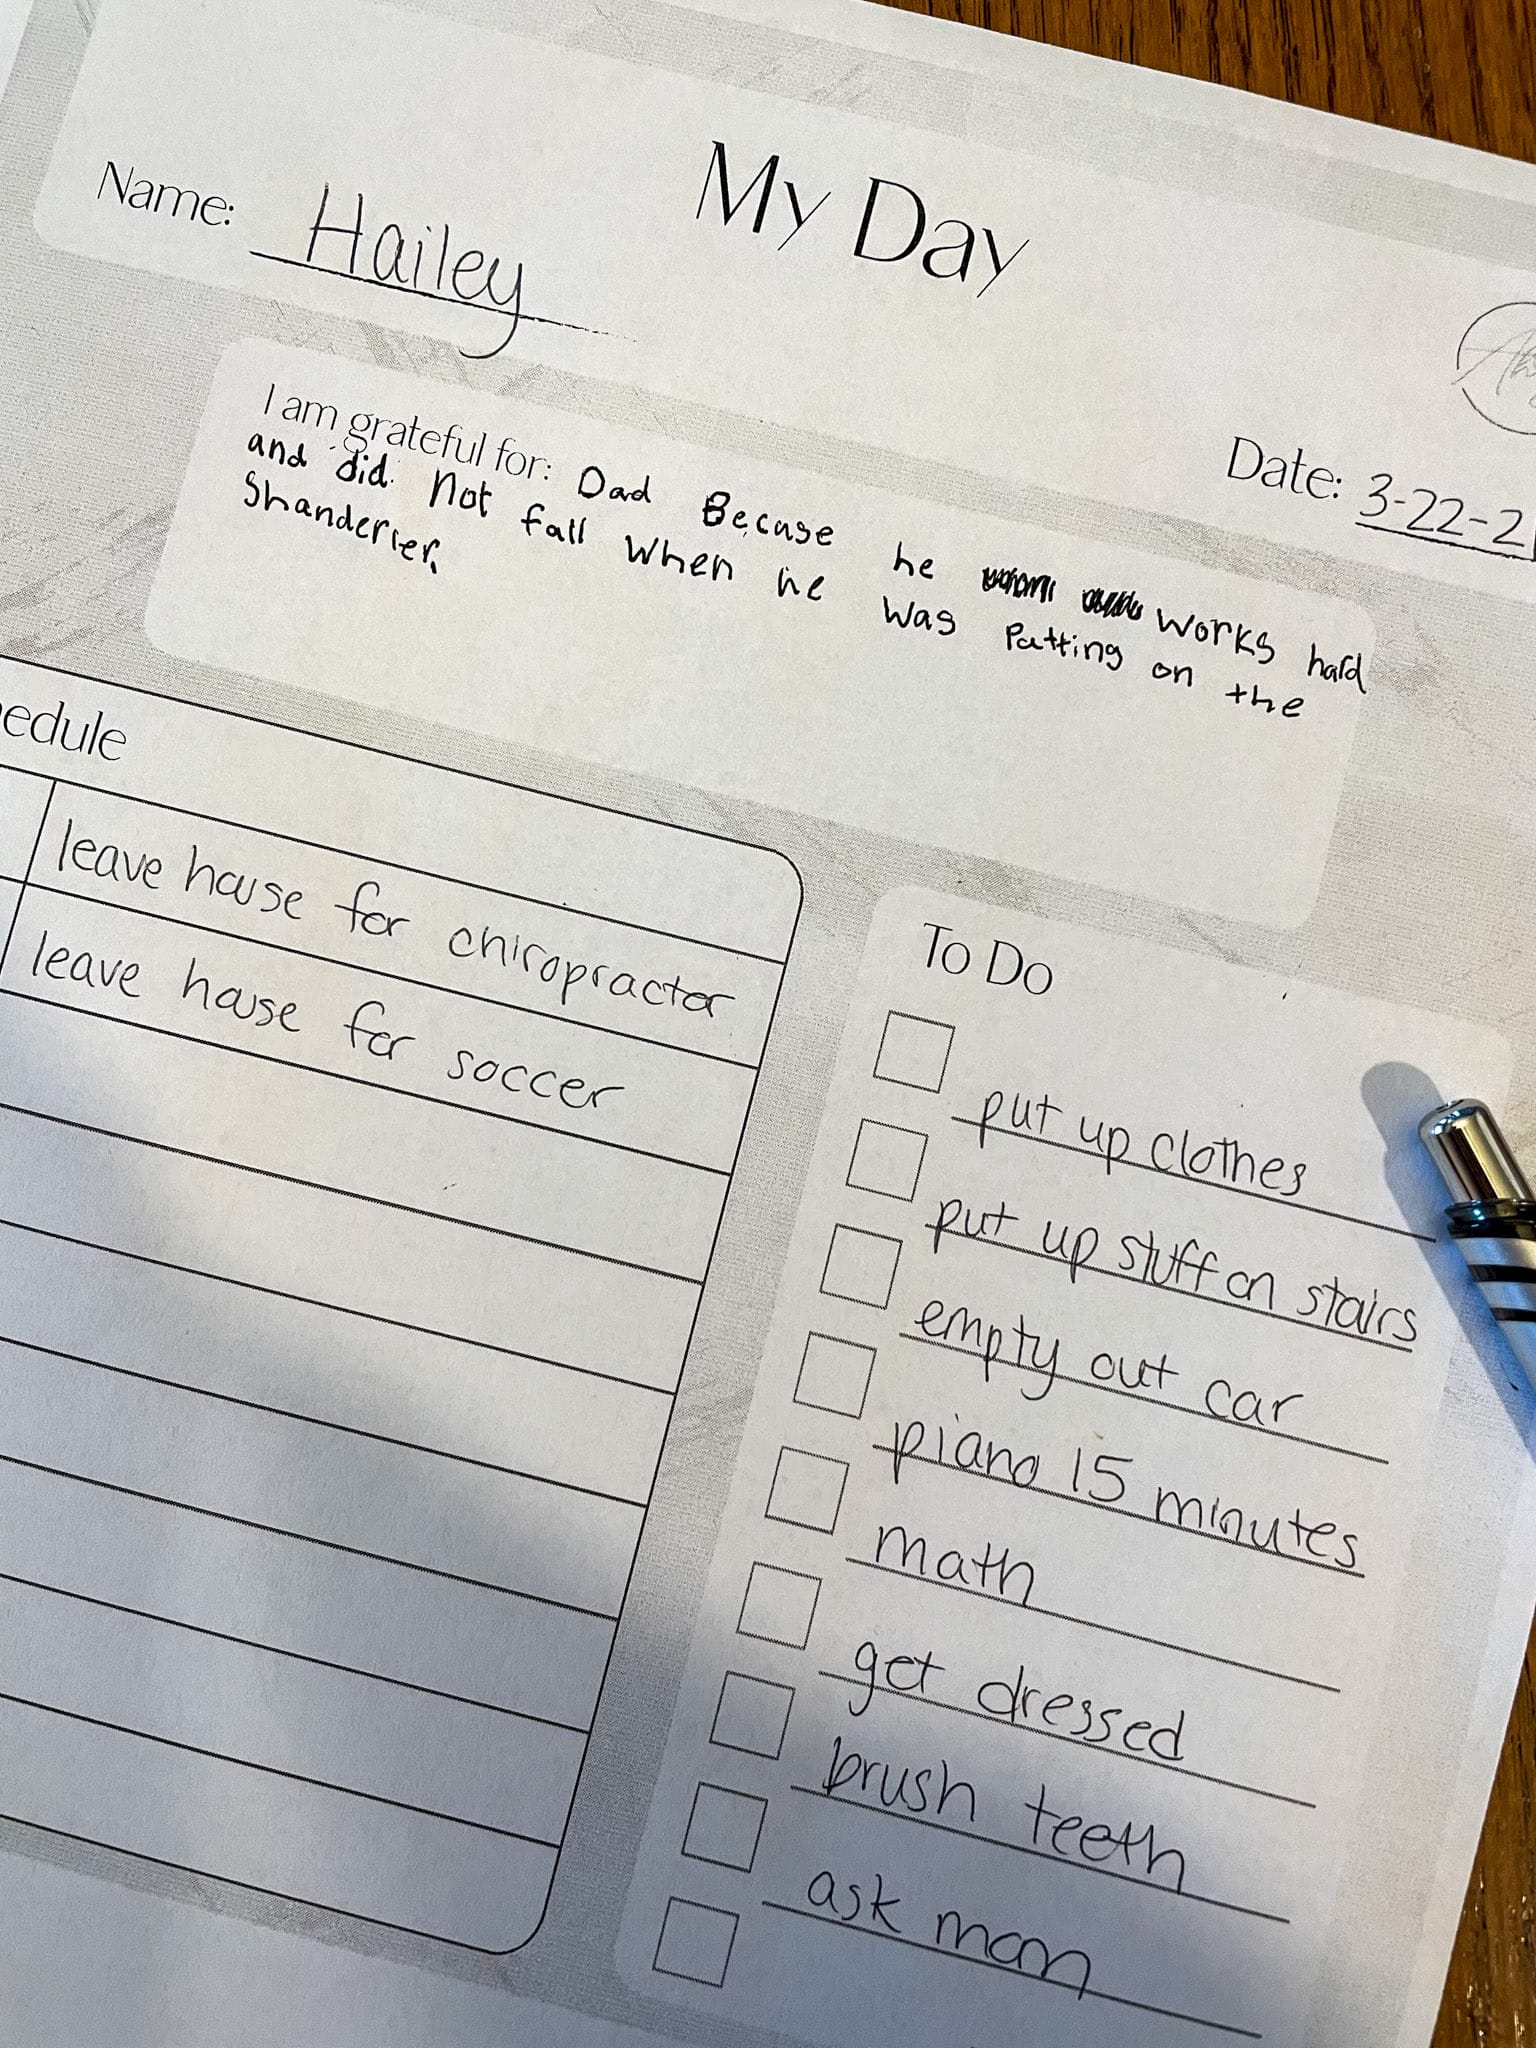 My Day
Name: Hailey
Date: 3-22-21
I am grateful for: Dad Because he works hard
and did not fall when he was Patting on the
Shanderier.
edule
leave house for chiropractor
leave house for soccer
To Do
put up clothes
put up stuff on stairs
empty out car
piano 15 minutes
math
get dressed
brush teeth
ask mom